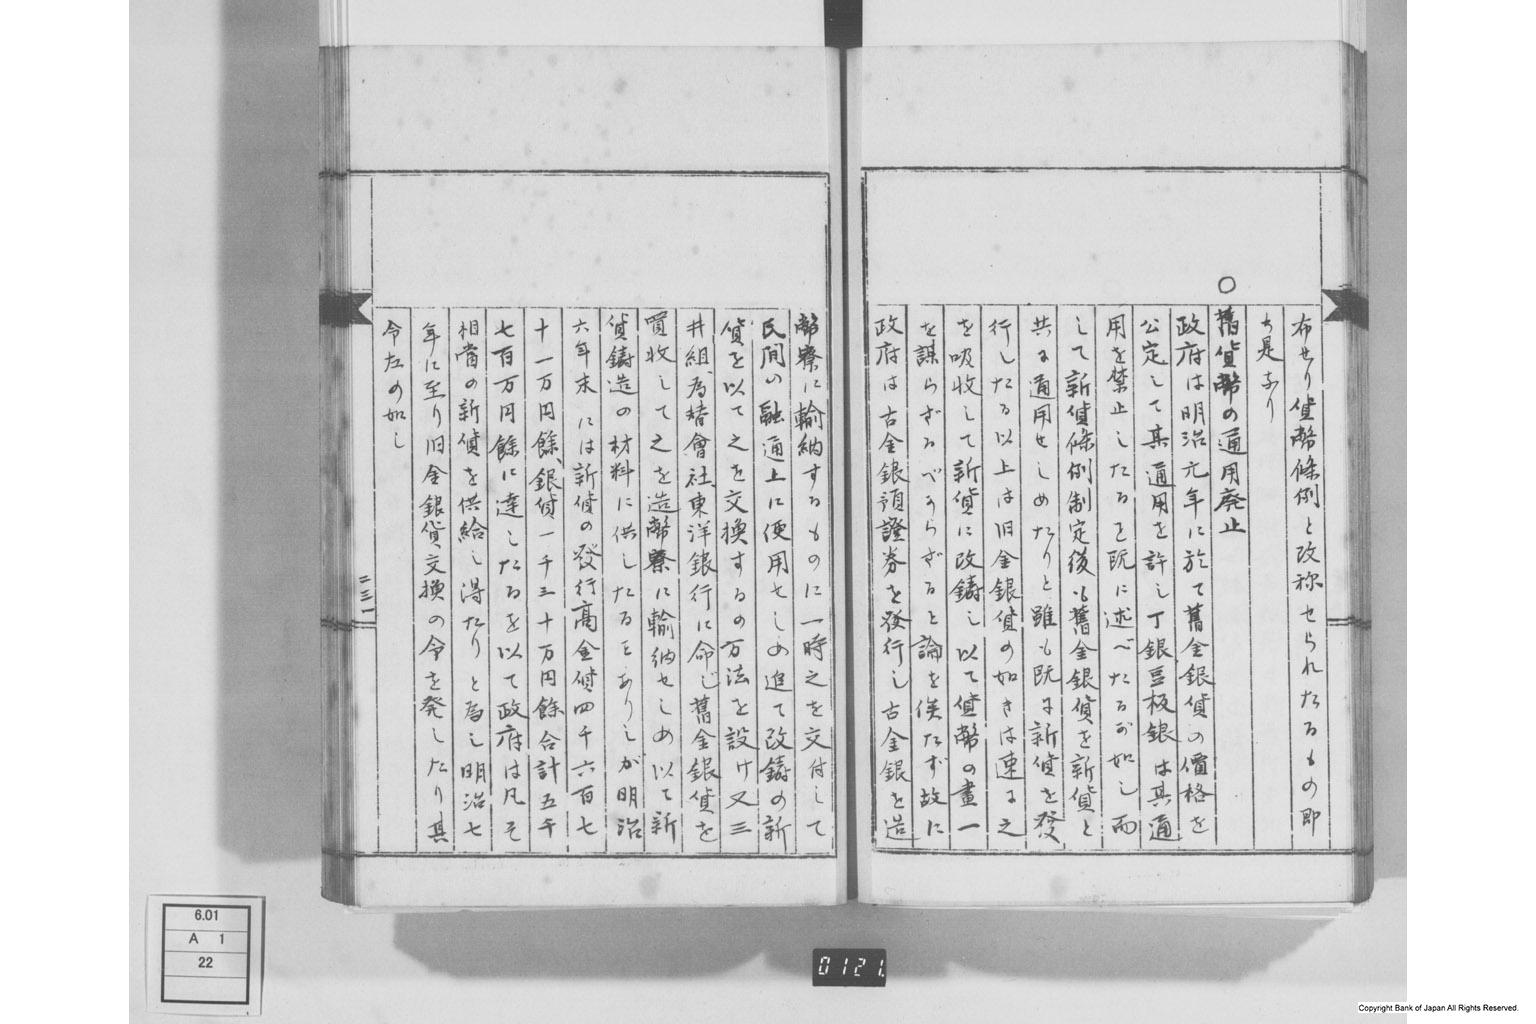 布せり貨幣條例と改称せられたるもの即
ち是なり
○舊貨幣の通用廃止
政府は明治元年に於て舊金銀貨の價格を
公定して其通用を許し丁銀豆板銀は其通
用を禁止したるを既に述べたるが如し而
して新貨條例制定後も舊金銀貨を新貨と
共に通用せしめたりと雖も既に新貨を發
行したる以上は旧金銀貨の如きは速に之
を吸收して新貨に改鋳し以て貨幣の畫一
を謀らざるべからざると論を俟たず故に
政府は古金銀預證券を發行し古金銀を造
幣寮に輸納するものに一時之を交付して
民間の融通上に便用せしめ追て改鋳の新
貨を以て之を交換するの方法を設け又三
井組、為替會社、東洋銀行に命じ舊金銀貨を
買收して之を造幣寮に輸納せしめ以て新
貨鋳造の材料に供したるをありしが明治
六年末には新貨の發行高金貨四千六百七
十一万円餘、銀貨一千三十万円餘合計五千
七百万円餘に達したるを以て政府は凡そ
相當の新貨を供給し得たりと為し明治七
年に至り旧金銀貨交換の令を発したり其
令左の如し
二三一
6.01
A 1
22
0121.
Copyright Bank of Japan All Rights Reserved.